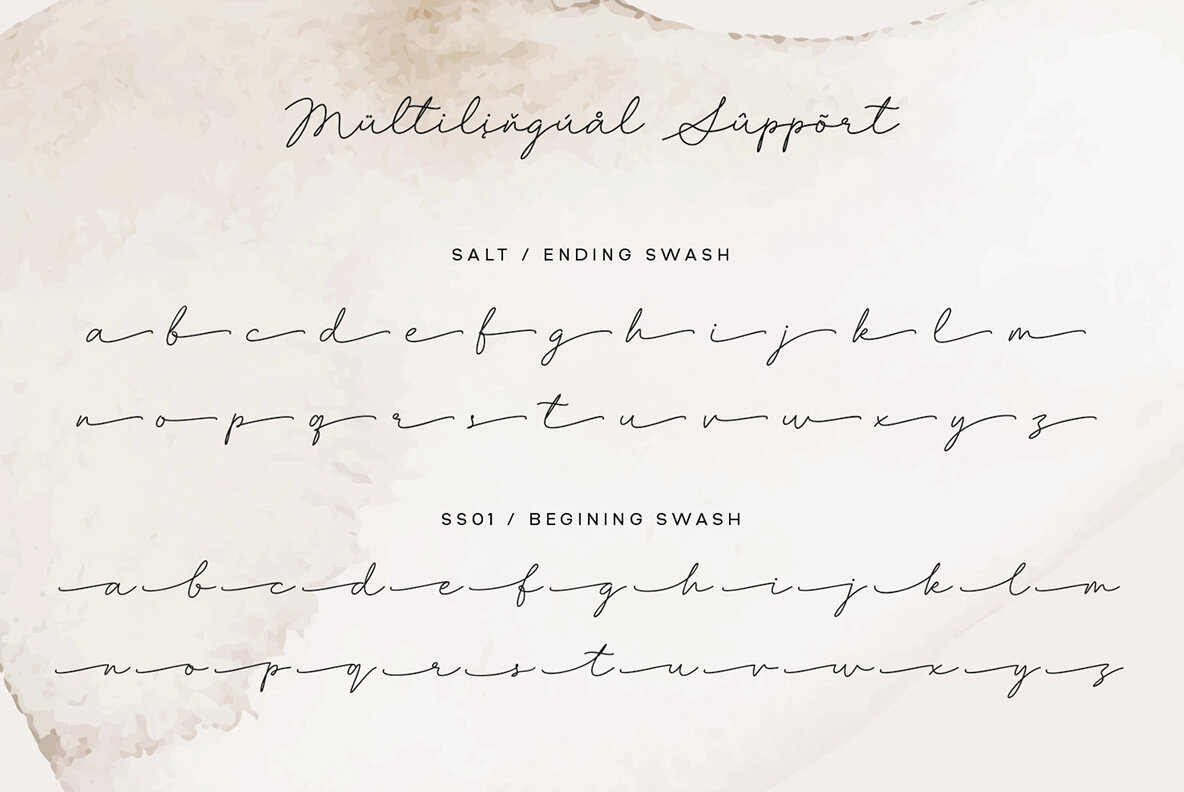 Mültilįňgúål Sûppõrt
SALT / ENDING SWASH
a b c d e f g h i j k l m
n o p q r s t u v w x y z
SS01 / BEGINING SWASH
a b c d e f g h i j k l m
n o p q r s t u v w x y z